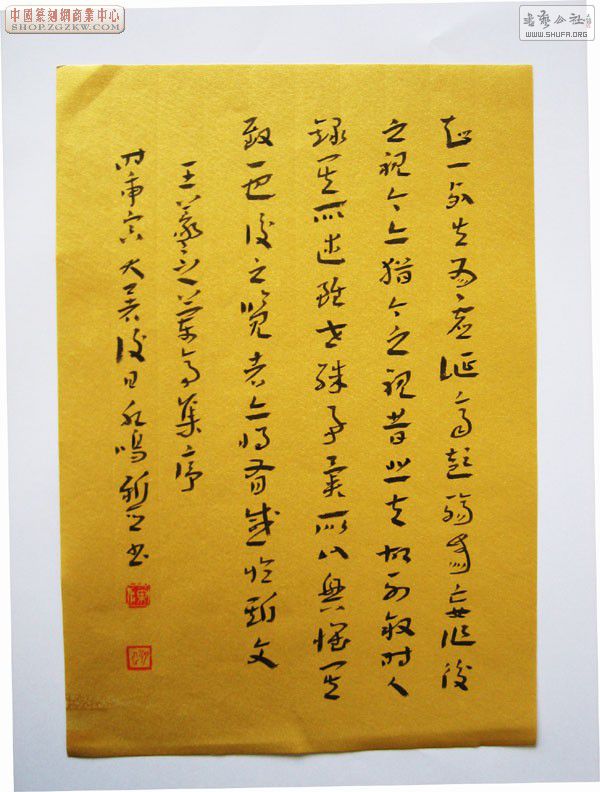 中國篆刻網商業中心
SHOP.ZGZKW.COM
書藝公社
WWW.SHUFA.ORG
知一死生為虛誕齊彭殤為妄作後
之視今亦猶今之視昔悲夫故列敘時人
錄其所述雖世殊事異所以興懷其
致一也後之覽者亦將有感於斯文
王羲之蘭亭集序
時庚寅大暑後日鳴書